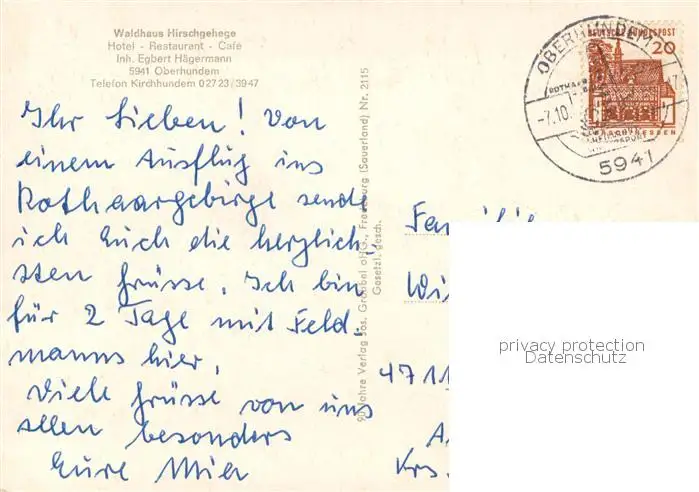 Waldhaus Hirschgehege
Hotel - Restaurant - Café
Inh. Egbert Hägermann
5941 Oberhundem
Telefon Kirchhundem 02723/3947
Ihr Lieben! Von
einem Ausflug ins
Rothaargebirge sende
ich Euch die herzlich-
sten Grüsse. Ich bin
für 2 Tage mit Feld-
manns hier.
Viele Grüsse von uns
allen besonders
Eure Mia
90 Jahre Verlag Jos. Grobbel oHG., Fredeburg (Sauerland) Nr. 2115
Gesetzl. gesch.
DEUTSCHE BUNDESPOST
20
OBERHUNDEM
-7.10.
5941
Familie
4711
Krs.
privacy protection
Datenschutz